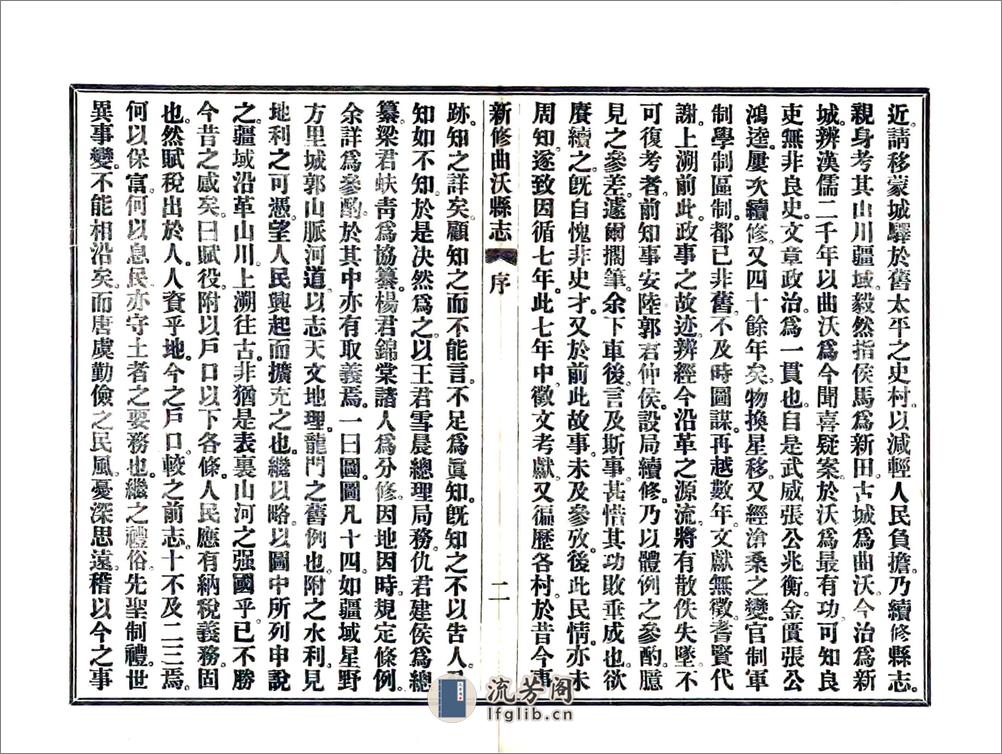 近請移蒙城驛於舊太平之史村以減輕人民負擔乃續修縣志。
親身考其山川疆域毅然指侯馬爲新田古城爲曲沃今治爲新
城辨漢儒二千年以曲沃爲今聞喜疑案於沃爲最有功可知良
吏無非良史文章政治爲一貫也自是武威張公兆衡金匱張公
鴻逵屢次續修又四十餘年矣物換星移又經滄桑之變官制軍
制學制區制都已非舊不及時圖謀再越數年文獻無徵耆賢代
謝上溯前此政事之故迹辨經今沿革之源流將有散佚失墜不
可復考者前知事安陸郭君仲侯設局續修乃以體例之參酌臆
見之參差遽爾擱筆余下車後言及斯事甚惜其功敗垂成也欲
賡續之旣自愧非史才又於前此故事未及參攷後此民情亦未
周知遂致因循七年此七年中徵文考獻又徧歷各村於昔今事
新修曲沃縣志 序 二
跡知之詳矣顧知之而不能言不足爲眞知旣知之不以告人
知如不知於是決然爲之以王君雪晨總理局務仇君建侯爲總
纂梁君蚨靑爲協纂楊君錦棠諸人爲分修因地因時規定條例
余詳爲參酌於其中亦有取義焉一曰圖圖凡十四如疆域星野
方里城郭山脈河道以志天文地理龍門之舊例也附之水利見
地利之可憑望人民興起而擴充之也繼以略以圖中所列申說
之疆域沿革山川上溯往古非猶是表裏山河之强國乎已不勝
今昔之感矣曰賦役附以戶口以下各條人民應有納稅義務固
也然賦稅出於人人資乎地今之戶口較之前志十不及二三焉
何以保富何以息民亦守土者之要務也繼之禮俗先聖制禮世
異事變不能相沿矣而唐虞勤儉之民風憂深思遠稽以今之事
流芳阁
lfglib.cn